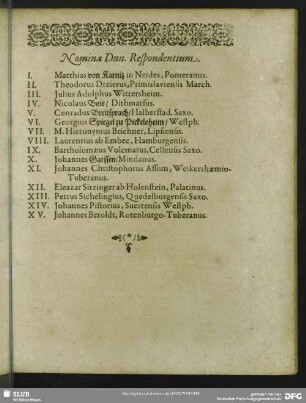 Nomina Dnn. Respondentium.
I. Matthias von Karnitz in Neides, Pomeranus.
II. Theodorus Dreierus, Primislaviensis March.
III. Julius Adolphus Wittersheim.
IV. Nicolaus Boie/ Dithmarsus.
V. Conradus Breitsprach/ Halberstad. Saxo.
VI. Georgius Spiegel zu Pickelsheim/ Westph.
VII. M. Hieronymus Brichner, Lipsensis.
VIII. Laurentius ab Embec, Hamburgensis.
IX. Bartholomæus Volemarus, Cellensis Saxo.
X. Johannes Garssen/ Mindanus.
XI. Johannes Christophorus Assum, Weikershæmio-
Tuberanus.
XII. Eleazar Sitzinger ab Holenstein, Palatinus.
XIII. Petrus Sichelingius, Quedelburgensis Saxo.
XIV. Johannes Pistorius, Suertensis Westph.
XV. Johannes Beroldt, Rotenburgo-Tuberanus.
SLUB
Wir führen Wissen.
gefördert von der
Deutschen Forschungsgemeinschaft
DFG